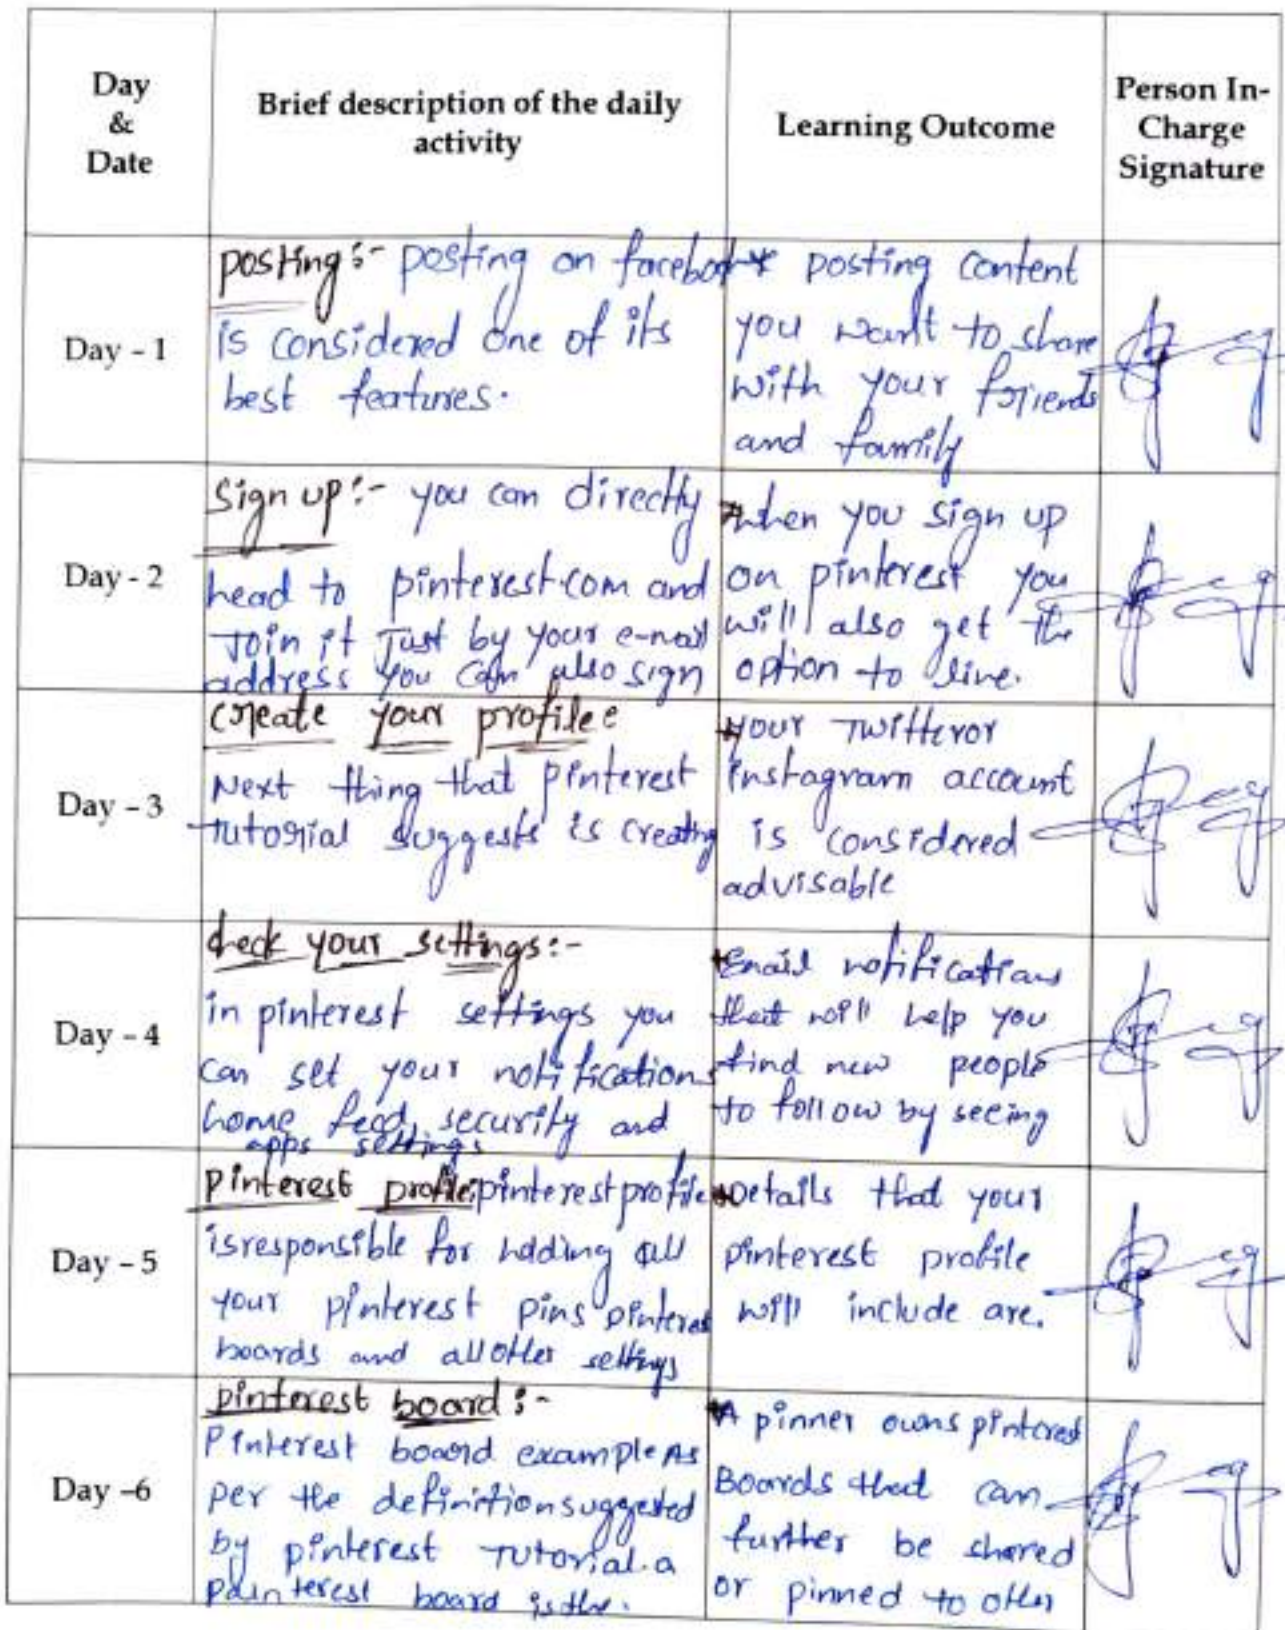 Day
&
Date
Brief description of the daily
activity
Learning Outcome
Person In-
Charge
Signature
Day - 1
posting :- posting on facebook
is considered one of its
best features.
* posting content
you want to share
with your friends
and family
Day - 2
Sign up :- you can directly
head to pinterest.com and
Join it Just by your e-mail
address you can also sign
* when you sign up
on pinterest you
will also get the
option to line.
Day - 3
create your profile :
Next thing that pinterest
Tutorial suggests is creating
* your Twitteror
instagram account
is considered
advisable
Day - 4
check your settings :-
in pinterest settings you
can set your notifications
home feed, security and
apps settings
* Email notifications
that will help you
find new people
to follow by seeing
Day - 5
pinterest profile: pinterest profile
is responsible for holding all
your pinterest pins pinterest
boards and all other settings
* Details that your
pinterest profile
will include are.
Day -6
pinterest board :-
Pinterest board example As
per the definition suggested
by pinterest Tutorial. a
painterest board is the.
* A pinner owns pinterest
Boards that can
further be shared
or pinned to other